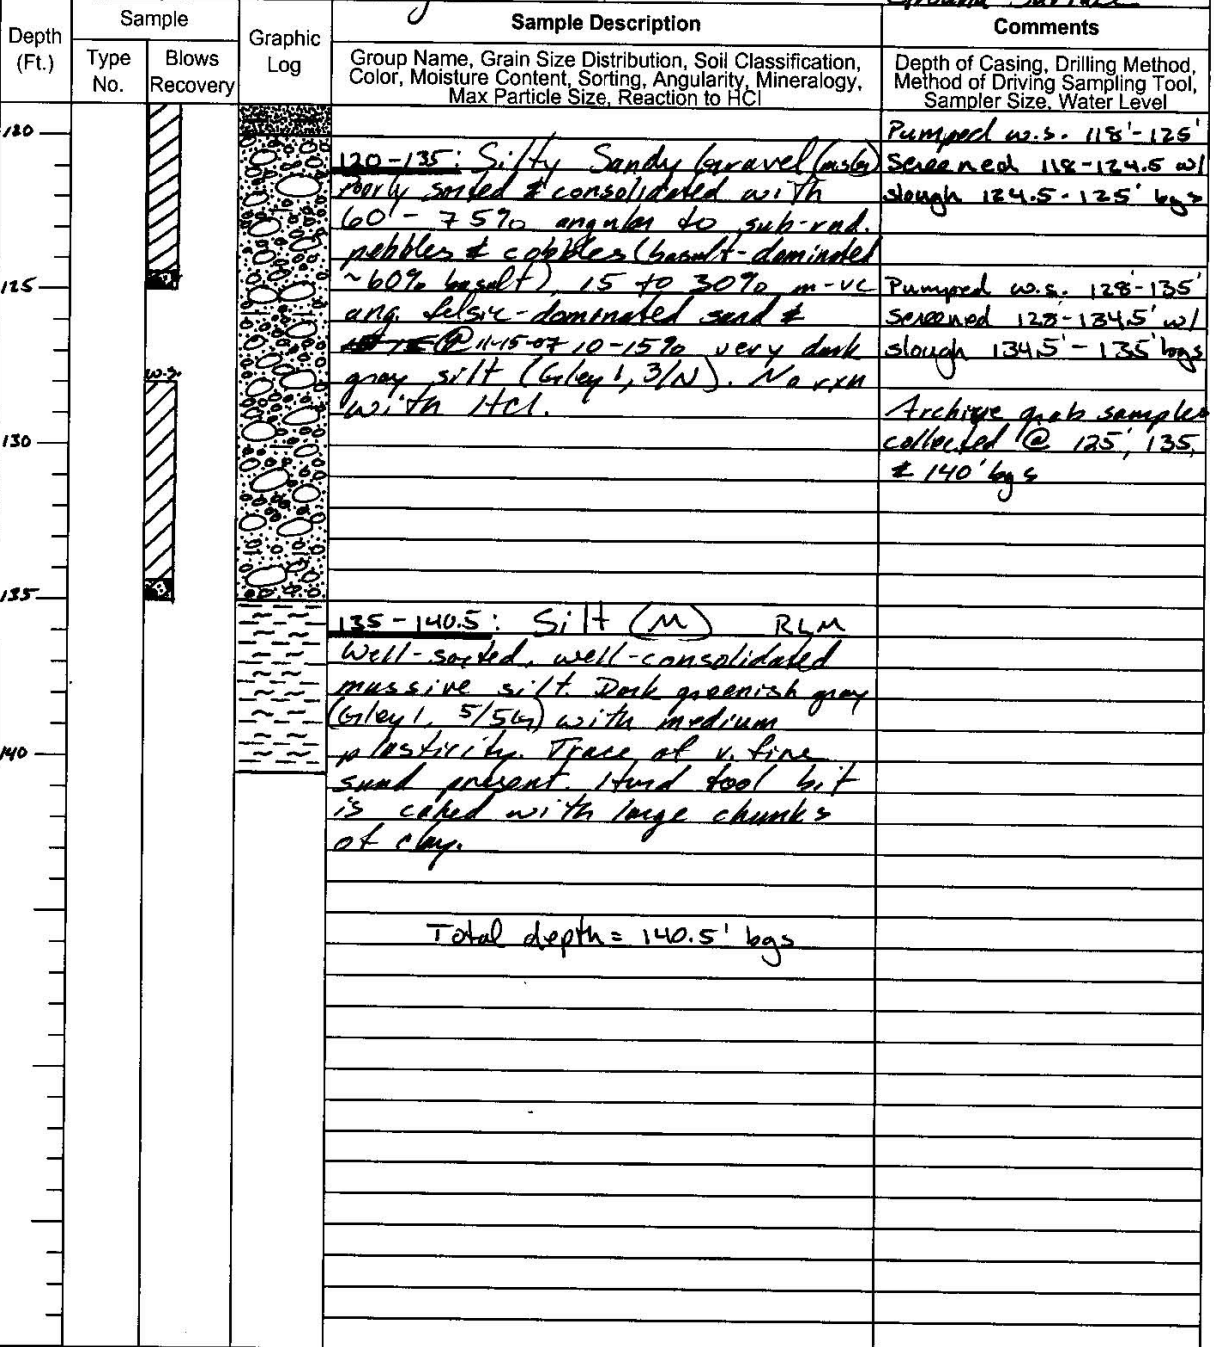 Ground Surface
Depth
(Ft.)
Sample
Type
No.
Blows
Recovery
Graphic
Log
Sample Description
Group Name, Grain Size Distribution, Soil Classification,
Color, Moisture Content, Sorting, Angularity, Mineralogy,
Max Particle Size, Reaction to HCl
Comments
Depth of Casing, Drilling Method,
Method of Driving Sampling Tool,
Sampler Size, Water Level
120
125
w.s.
130
135
140
120-135: Silty Sandy Gravel (msG)
Poorly sorted & consolidated with
60 - 75% angular to sub-rnd.
pebbles & cobbles (basalt-dominated
~60% basalt), 15 to 30% m-vc
ang. felsic-dominated sand &
11-15-07 10-15% very dark
gray silt (Gley 1, 3/N). No rxn
with HCl.
135-140.5: Silt (M) RLM
Well-sorted, well-consolidated
massive silt. Dark greenish gray
(Gley 1, 5/5G) with medium
plasticity. Trace of v. fine
sand present. Hard tool bit
is caked with large chunks
of clay.
Total depth = 140.5' bgs
Pumped w.s. 118'-125'
Screened 118-124.5 w/
slough 124.5-125' bgs
Pumped w.s. 128-135'
screened 128-134.5' w/
slough 134.5'-135' bgs
Archive grab samples
collected @ 125', 135,
& 140' bgs